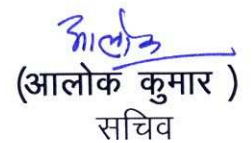 आलोक
(आलोक कुमार )
सचिव